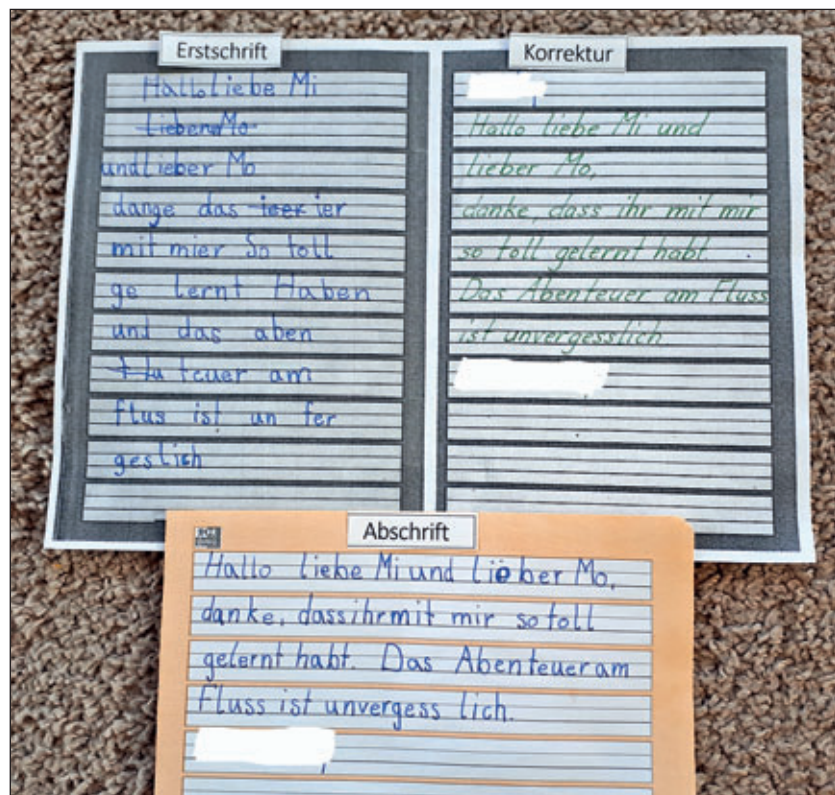 Erstschrift
Hallo liebe Mi
Lieben Mo
und Lieber Mo
dange das ieer ier
mit mier So toll
ge lernt Haben
und das aben
teuer am
flus ist un fer
geslich
Korrektur
Hallo liebe Mi und
lieber Mo,
danke, dass ihr mit mir
so toll gelernt habt.
Das Abenteuer am Fluss
ist unvergesslich
Abschrift
Hallo liebe Mi und lieber Mo,
danke, dass ihr mit mir so toll
gelernt habt. Das Abenteuer am
Fluss ist unvergess lich.